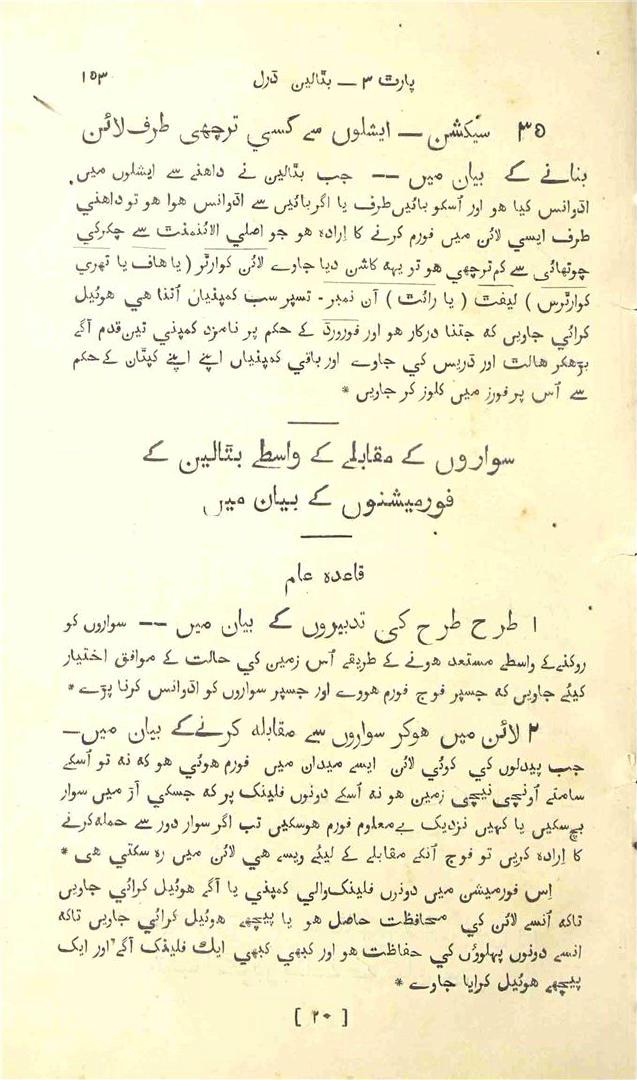 پارٹ ۳ ــ بٹالین ڈرل ۱۵۳
۳۵ سیکشن ــ ایشلوں سے کسي ترچھی طرف لائن
بنانے کے بیان میں -- جب بٹالین نے داهنے سے ایشلوں میں
اڈوانس کیا هو اور اُسکو بائیں طرف یا اگر بائیں سے اڈوانس هوا هو تو داهني
طرف ایسی لائن میں فورم کرنے کا اِرادہ هو جو اصلي الائنمنٹ سے چکر کي
چوتهائی سے کم ترچھی هو تو یہہ کاشن دیا جاوے لائن کوارٹر ( یا هاف یا تھری
کوارٹرس ) لیفٹ ( یا رائٹ ) آن نمبر - تسپر سب کمپنیاں اُتنا هي هوئیل
کرائي جاویں کہ جتنا درکار هو اور فورورڈ کے حکم پر نامزد کمپني تین قدم آگے
بڑهکر هالٹ اور ڈریس کي جاوے اور باقي کمپنیاں اپنے اپنے کپتان کے حکم
سے اُس پر فورز میں کلوز کر جاویں *
سواروں کے مقابلے کے واسطے بٹالین کے
فورمیشنوں کے بیان میں
قاعدہ عام
۱ طرح طرح کی تدبیروں کے بیان میں -- سواروں کو
روکنے کے واسطے مستعد هونے کے طریقے اُس زمین کي حالت کے موافق اختیار
کیئے جاویں کہ جسپر فوج فورم هووے اور جسپر سواروں کو اڈوانس کرنا پڑے *
۲ لائن میں هوکر سواروں سے مقابلہ کرنے کے بیان میں ــ
جب پیدلوں کي کوئي لائن ایسے میدان میں فورم هوئي هو کہ نہ تو اُسکے
سامنے اُونچي نیچي زمین هو نہ اُسکے دونوں فلینک پر کہ جسکي آڑ میں سوار
بچ سکیں یا کہیں نزدیک بے معلوم فورم هوسکیں تب اگر سوار دور سے حملہ کرنے
کا اِرادہ کریں تو فوج اُنکے مقابلے کے لیئے ویسے هي لائن میں رہ سکتي هی *
اِس فورمیشن میں دونوں فلینک والي کمپني یا آگے هوئیل کرائي جاویں
تاکہ اُنسے لائن کي محافظت حاصل هو یا پیچھے هوئیل کرائي جاویں تاکہ
انسے دونوں پہلوؤں کي حفاظت هو اور کبھي کبھي ایک فلینک آگے اور ایک
پیچھے هوئیل کرایا جاوے *
[ ۲۰ ]